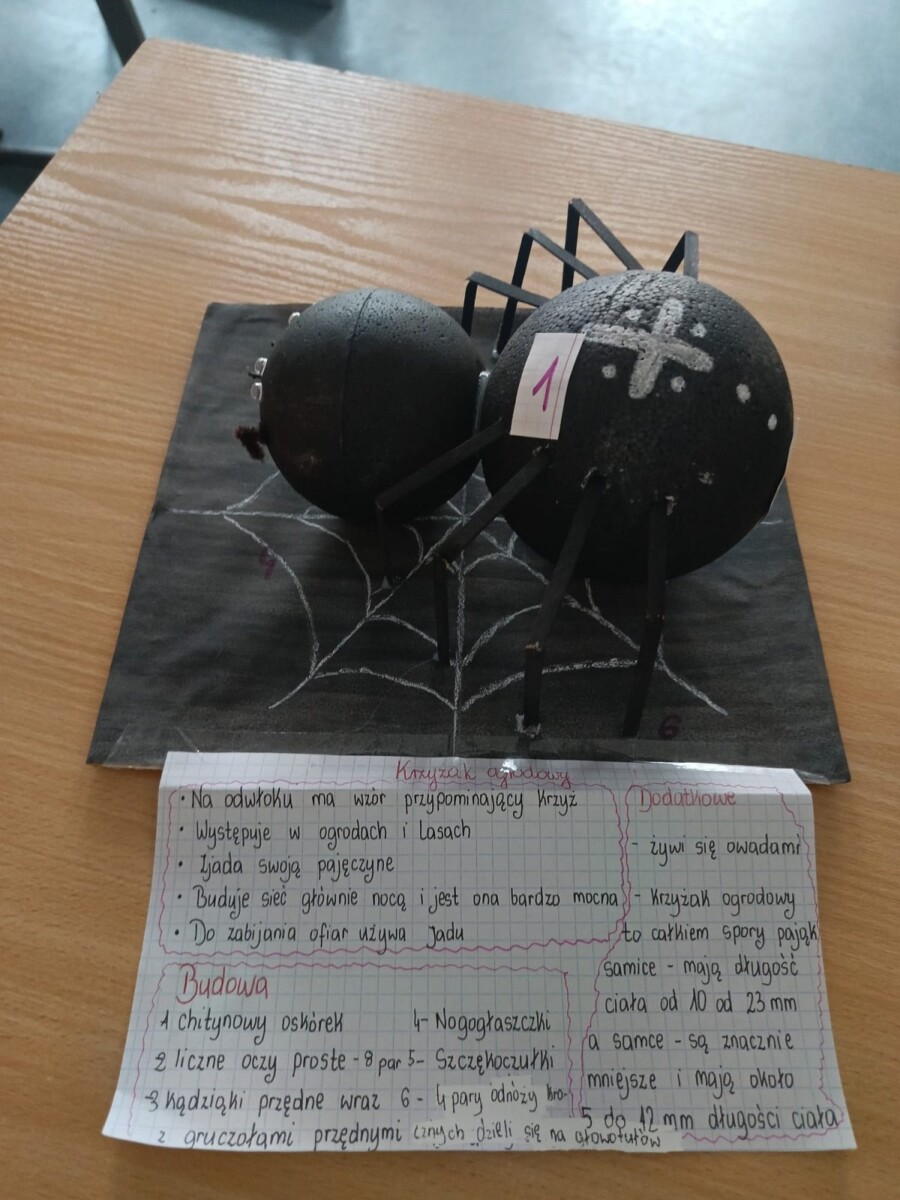 1
4
6
Krzyżak ogrodowy
• Na odwłoku ma wzór przypominający krzyż
• Występuje w ogrodach i Lasach
• Zjada swoją pajęczyne
• Buduje sieć głównie nocą i jest ona bardzo mocna
• Do zabijania ofiar używa jadu
Budowa
1 chitynowy oskórek
2 liczne oczy proste - 8 par
3 kądziąłki przędne wraz
z gruczołami przędnymi
4- Nogogłaszczki
5- Szczękoczułki
6 - 4 pary odnóży kro-
cznych dzieli się na głowotułów
Dodatkowe
- żywi się owadami
- Krzyżak ogrodowy
to całkiem spory pająk
samice - mają długość
ciała od 10 od 23 mm
a samce - są znacznie
mniejsze i mają około
5 do 12 mm długości ciała